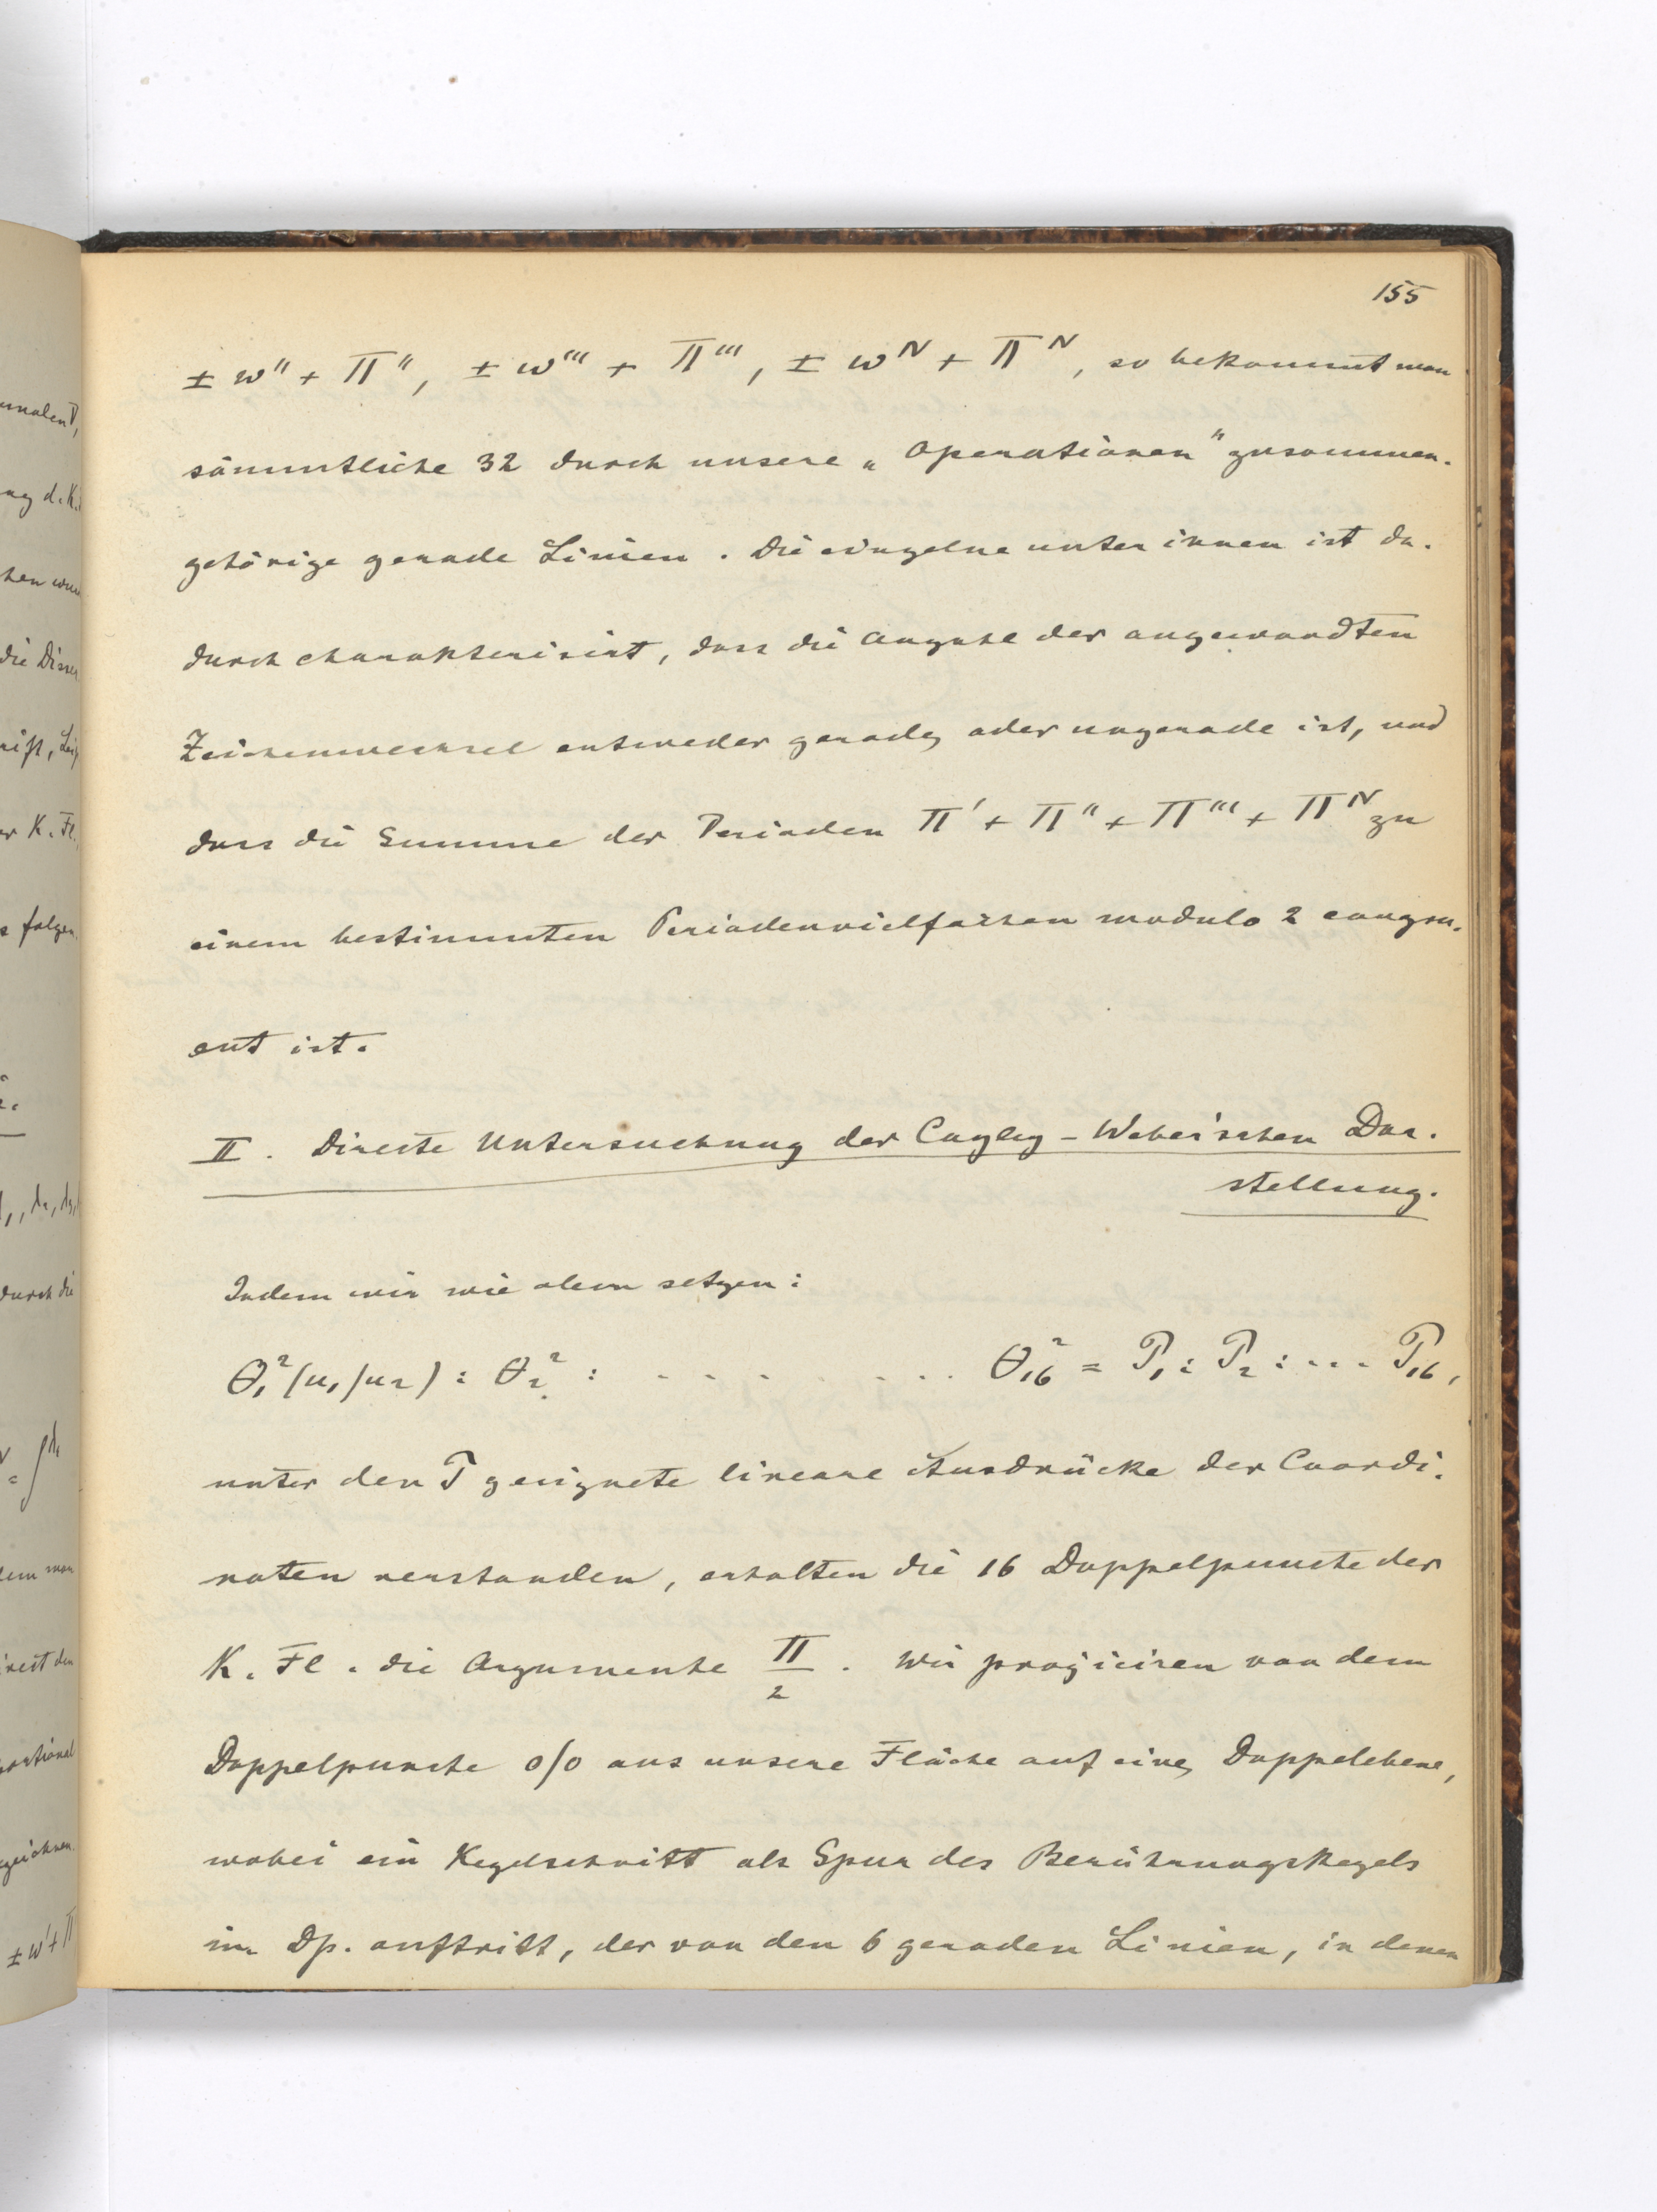 155
± w'' + Π'', ± w''' + Π''', ± w^IV + Π^IV, so bekommt man
sämmtliche 32 durch unsere „Operationen" zusammen-
gehörige gerade Linien. Die einzelne unter ihnen ist da-
durch charakterisirt, dass die Anzahl der angewandten
Zeichenwechsel entweder gerade, oder ungerade ist, und
dass die Summe der Perioden Π' + Π'' + Π''' + Π^IV zu
einem bestimmten Periodenvielfachen modulo 2 congru-
ent ist.
II. Directe Untersuchung der Cayley-Weber'schen Dar-
stellung.
Indem wir wie oben setzen:
θ₁²(u₁/u₂) : θ₂² : . . . . . . . . . θ₁₆² = P₁ : P₂ : . . . P₁₆,
unter den P geeignete lineare Ausdrücke der Coordi-
naten verstanden, erhalten die 16 Doppelpuncte der
K. Fl. die Argumente Π/2. Wir projiciren von dem
Doppelpuncte 0/0 aus unsere Fläche auf eine, Doppelebene,
wobei ein Kegelschnitt als Spur des Berührungskegels
im Dp. auftritt, der von den 6 geraden Linien, in denen